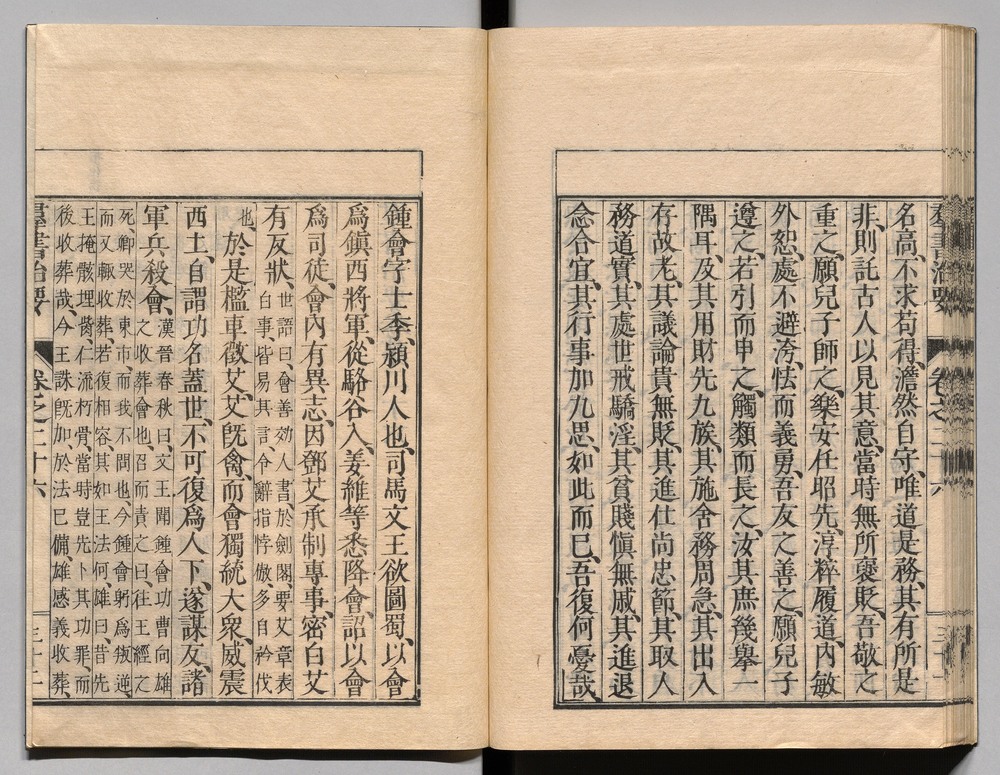 羣書治要　卷之二十六
名高不求苟得澹然自守唯道是務其有所是
非則託古人以見其意當時無所襃貶吾敬之
重之願兒子師之樂安任昭先淳粹履道內敏
外恕處不避洿怯而義勇吾友之善之願兒子
遵之若引而申之觸類而長之汝其庶幾擧一
隅耳及其用財先九族其施舍務周急其出入
存故老其議論貴無貶其進仕尚忠節其取人
務道實其處世戒驕淫其貧賤愼無戚其進退
念合宜其行事加九思如此而已吾復何憂哉
鍾會字士季潁川人也司馬文王欲圖蜀以會
爲鎭西將軍從駱谷入姜維等悉降會詔以會
爲司徒會內有異志因鄧艾承制專事密白艾
有反狀世語曰會善効人書於劍閣要艾章表
白事皆易其言令辭指悖傲多自矜伐
也於是檻車徵艾艾旣禽而會獨統大衆威震
西土自謂功名蓋世不可復爲人下遂謀反諸
軍兵殺會漢晉春秋曰文王聞鍾會功曹向雄
之收葬會也召而責之曰往王經之
死卿哭於東市而我不問也今鍾會躬爲叛逆
而又輒收葬若復相容其如王法何雄曰昔先
王掩骼埋胔仁流朽骨當時豈先卜其功罪而
後收葬哉今王誅旣加於法已備雄感義收葬
羣書治要　卷之二十六　三十二